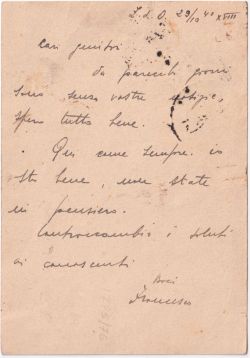 Z.d.O. 29/10 40 XVIII
Cari genitori
da parecchi giorni
sono senza vostre notizie,
spero tutto bene.
Qui come sempre. io
sto bene, non state
in pensiero.
Contraccambio i saluti
ai conoscenti
Baci
Francesco